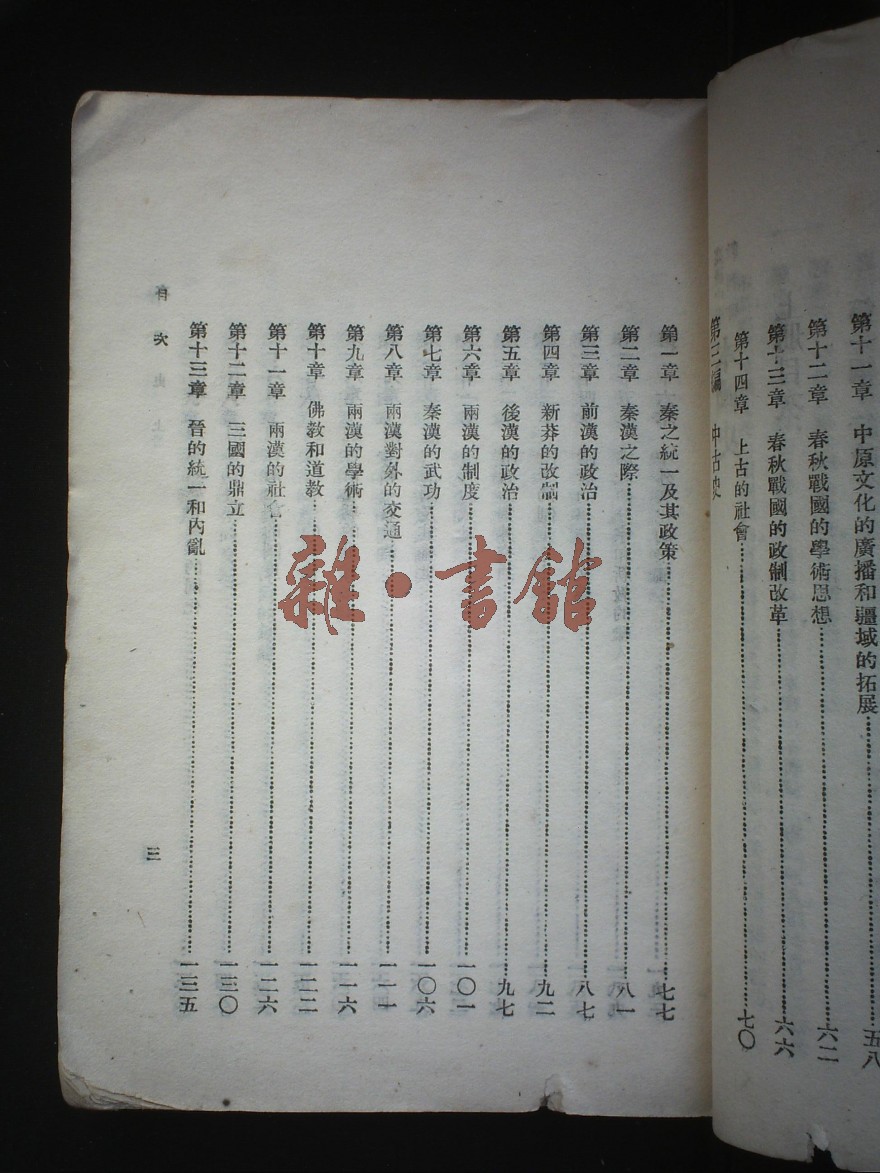 第十一章 中原文化的廣播和疆域的拓展 五八
第十二章 春秋戰國的學術思想 六二
第十三章 春秋戰國的政制改革 六六
第十四章 上古的社會 七〇
第三編 中古史
第一章 秦之統一及其政策 七七
第二章 秦漢之際 八一
第三章 前漢的政治 八七
第四章 新莽的改制 九二
第五章 後漢的政治 九七
第六章 兩漢的制度 一〇一
第七章 秦漢的武功 一〇六
第八章 兩漢對外的交通 一一一
第九章 兩漢的學術 一一六
第十章 佛教和道教 一二二
第十一章 兩漢的社會 一二六
第十二章 三國的鼎立 一三〇
第十三章 晉的統一和內亂 一三五
目次 三
雜·書館